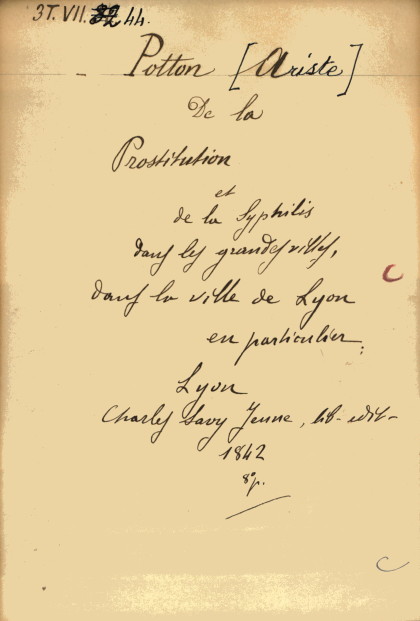 3T. VII. 44.
Potton [Ariste]
De la
Prostitution
et
de la Syphilis
dans les grandes villes,
dans la ville de Lyon
en particulier;
Lyon
Charles Savy Jeune, lib-édit-
1842
8º.